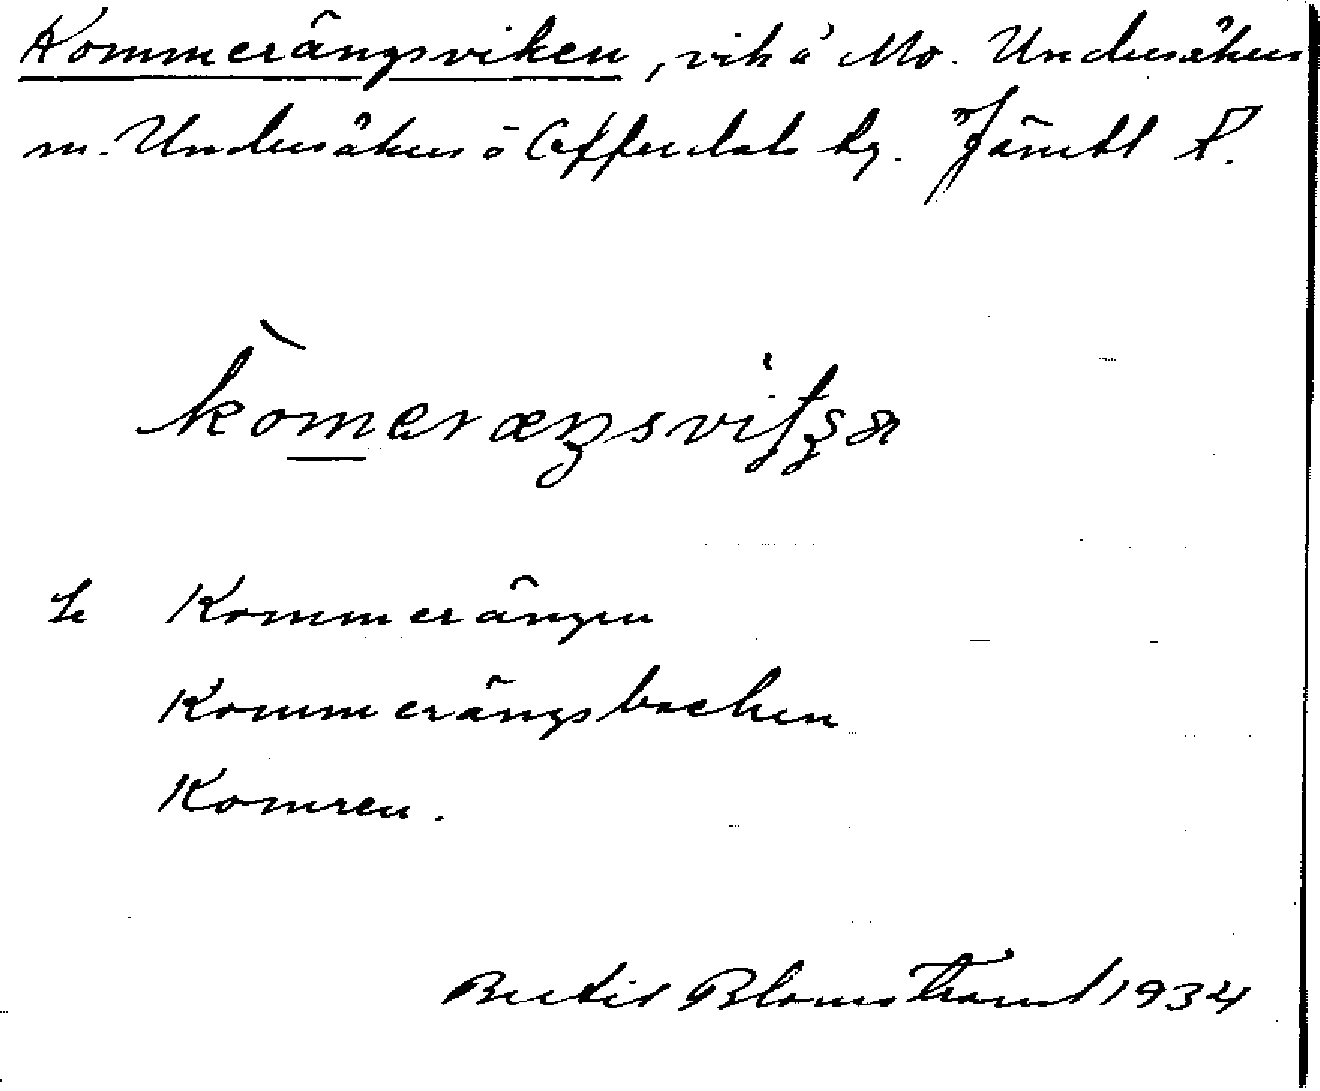 Kommerängsviken, vik å Mo. Undersåkers
m. Undersåkers o Offerdals tg. Jämtl l.
Kommerängen
Kommerängsbacken
Komren.
Bertil Blomstrand 1934